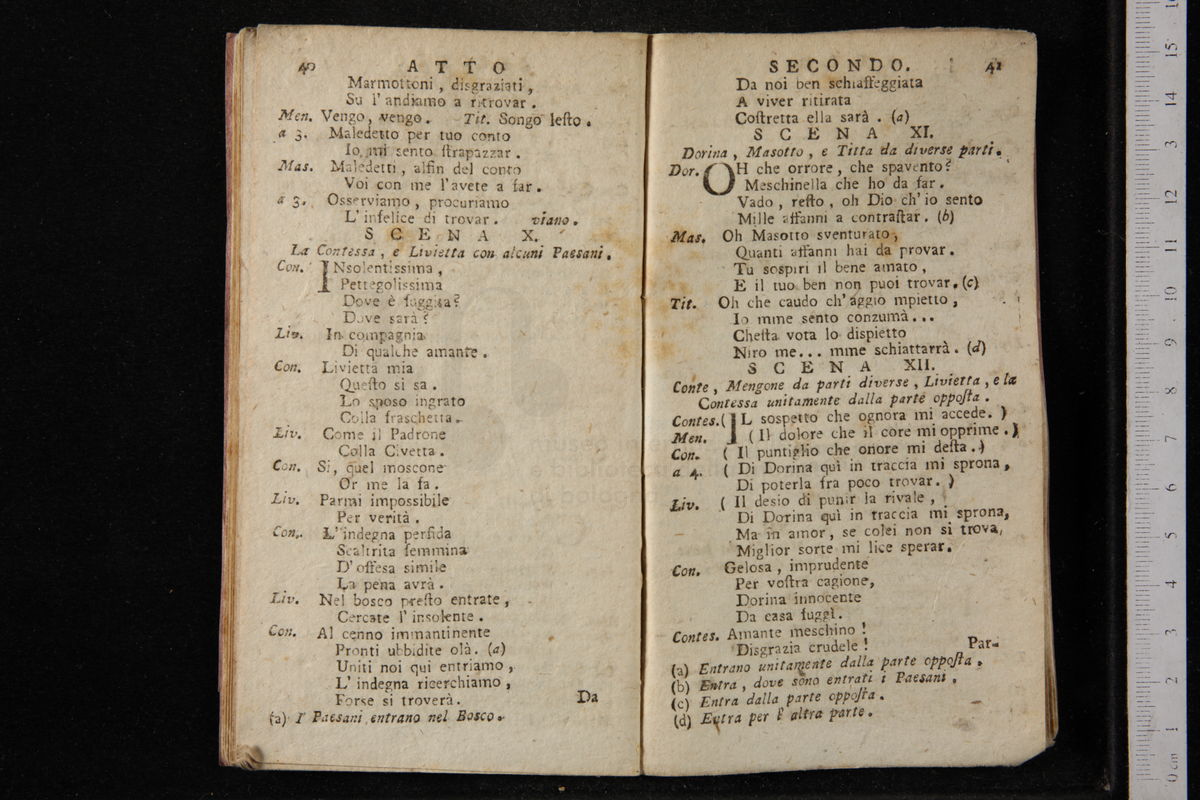 40 ATTO
Marmottoni , disgraziati ,
Su l' andiamo a ritrovar .
Men. Vengo, vengo. Tit. Songo leſto .
a 3. Maledetto per tuo conto
Io mi sento ſtrapazzar .
Mas. Maledetti , alfin del conto
Voi con me l'avete a far .
a 3. Osserviamo , procuriamo
L' infelice di trovar . viano .
SCENA X.
La Contessa , e Livietta con alcuni Paesani .
Con. INsolentissima ,
Pettegolissima
Dove è fuggita?
Dove sarà ?
Liv. In compagnia
Di qualche amante .
Con. Livietta mia
Queſto si sa .
Lo sposo ingrato
Colla fraschetta .
Liv. Come il Padrone
Colla Civetta .
Con. Si, quel moscone
Or me la fa .
Liv. Parmi impossibile
Per verità .
Con. L' indegna perfida
Scaltrita femmina
D' offesa simile
La pena avrà .
Liv. Nel bosco preſto entrate ,
Cercate l' insolente .
Con. Al cenno immantinente
Pronti ubbidite olà. (a)
Uniti noi qui entriamo ,
L' indegna ricerchiamo ,
Forse si troverà . Da
(a) I' Paesani entrano nel Bosco .
SECONDO. 41
Da noi ben schiaffeggiata
A viver ritirata
Coſtretta ella sarà . (a)
SCENA XI.
Dorina , Masotto , e Titta da diverse parti .
Dor. OH che orrore , che spavento?
Meschinella che ho da far .
Vado , reſto , oh Dio ch' io sento
Mille affanni a contraſtar . (b)
Mas. Oh Masotto sventurato ,
Quanti affanni hai da provar .
Tu sospiri il bene amato ,
E il tuo ben non puoi trovar. (c)
Tit. Oh che caudo ch' aggio mpietto ,
Io mme sento conzumà ...
Cheſta vota lo dispietto
Niro me... mme schiattarrà . (d)
SCENA XII.
Conte , Mengone da parti diverse , Livietta , e la
Contessa unitamente dalla parte oppoſta .
Contes. ( IL sospetto che ognora mi accede. )
Men. ( Il dolore che il core mi opprime . )
Con. ( Il puntiglio che onore mi deſta . )
a 4. ( Di Dorina quì in traccia mi sprona ,
Di poterla fra poco trovar. )
Liv. ( Il desio di punir la rivale ,
Di Dorina quì in traccia mi sprona,
Ma in amor , se colei non si trova,
Miglior sorte mi lice sperar.
Con. Gelosa , imprudente
Per voſtra cagione,
Dorina innocente
Da casa fuggì.
Contes. Amante meschino !
Disgrazia crudele ! Par-
(a) Entrano unitamente dalla parte oppoſta .
(b) Entra , dove sono entrati i Paesani .
(c) Entra dalla parte oppoſta .
(d) Entra per l' altra parte .